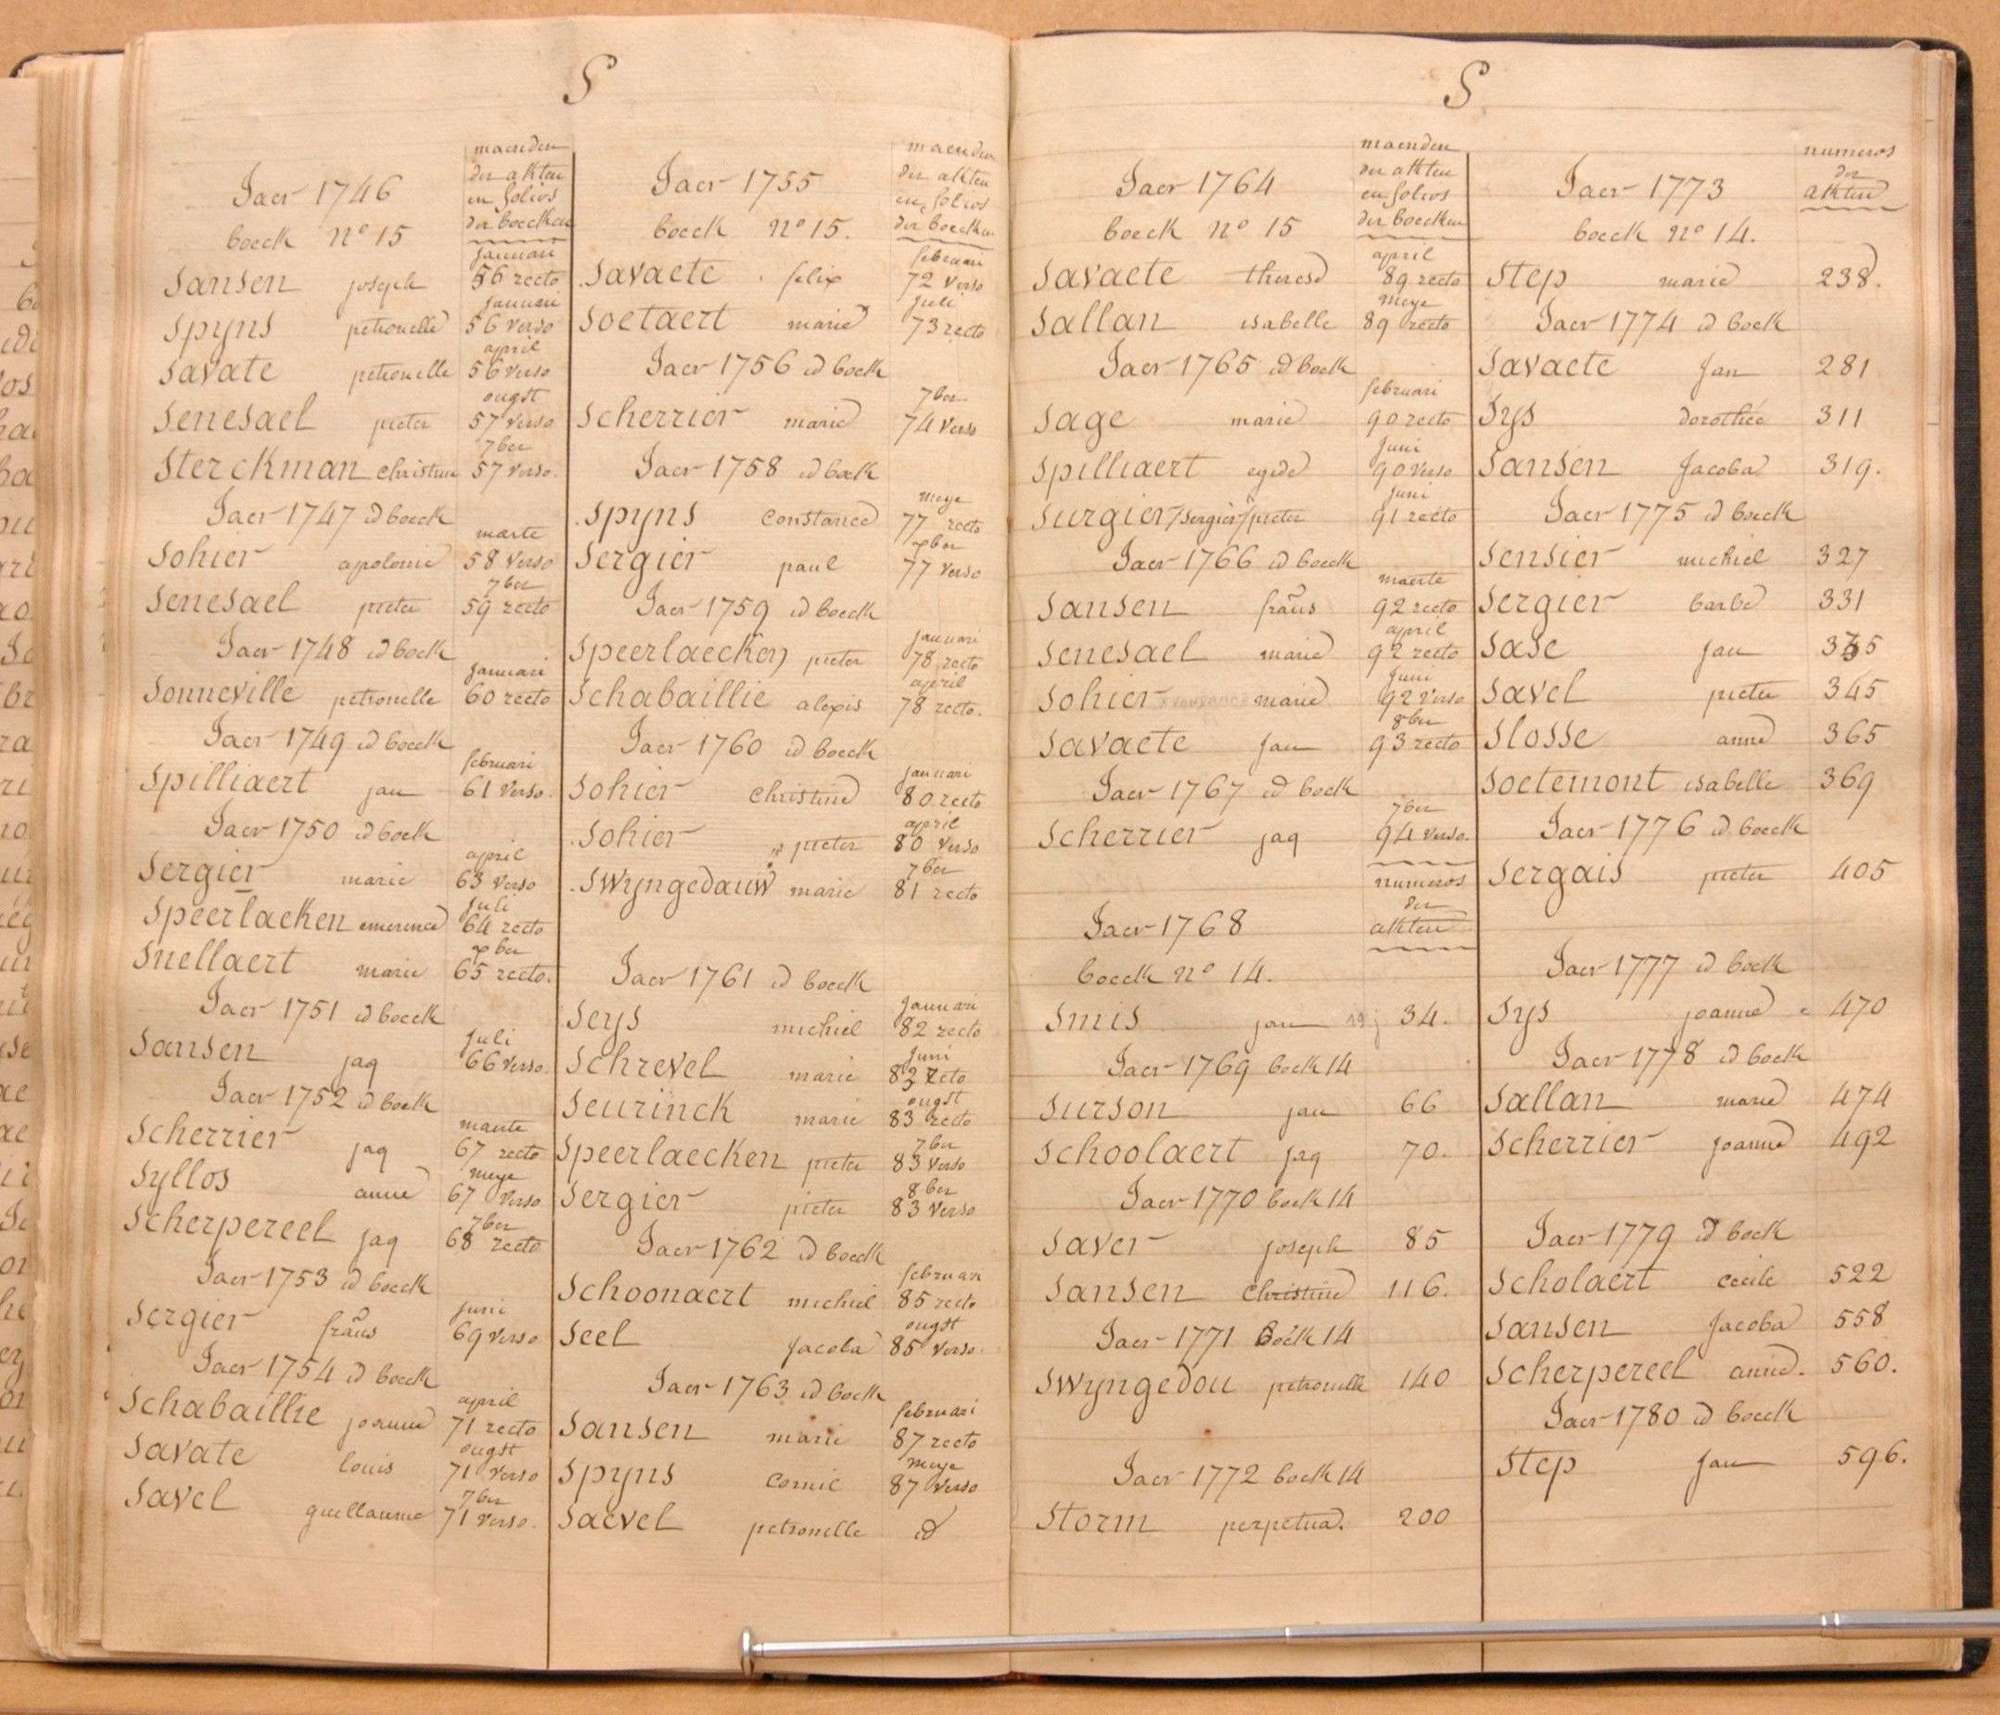 S
maenden
der akten
en folios
der boecken
Jaer 1746
boeck nº 15
januari
Sansen joseph 56 recto
januari
Spyns petronelle 56 verso
april
Savate petronelle 56 verso
ougst
Senesael pieter 57 verso
7ber
Sterckman christine 57 verso.
Jaer 1747 id boeck
marte
Sohier apolonie 58 verso
7ber
Senesael pieter 59 recto
Jaer 1748 id boeck
januari
Sonneville petronelle 60 recto
Jaer 1749 id boeck
februari
Spilliaert jan 61 verso.
Jaer 1750 id boeck
april
Sergier marie 63 verso
juli
Speerlaeken emerence 64 recto
xber
Snellaert marie 65 recto.
Jaer 1751 id boeck
juli
Sansen jaq 66 verso.
Jaer 1752 id boeck
maerte
Scherrier jaq 67 recto
meye
Syllos anne 67 verso
7ber
Scherpereel jaq 68 recto
Jaer 1753 id boeck
juni
Sergier frans 69 verso
Jaer 1754 id boeck
april
Schabaillie joanne 71 recto
ougst
Savate louis 71 verso
7ber
Savel guillaume 71 verso.
maenden
der akten
en folios
der boecken
Jaer 1755
boeck nº 15.
februari
Savaete felix 72 verso
juli
Soetaert marie 73 recto
Jaer 1756 id boeck
7ber
Scherrier marie 74 verso
Jaer 1758 id boeck
meye
Spyns constance 77 recto
xber
Sergier paul 77 verso
Jaer 1759 id boeck
januari
Speerlaecken pieter 78 recto
april
Schabaillie alexis 78 recto.
Jaer 1760 id boeck
januari
Sohier christine 80 recto
april
Sohier pieter 80 verso
7ber
Swyngedauw marie 81 recto
Jaer 1761 id boeck
januari
Seys michiel 82 recto
juni
Schrevel marie 83 recto
ougst
Seurinck marie 83 recto
7ber
Speerlaecken pieter 83 verso
8ber
Sergier pieter 83 verso
Jaer 1762 id boeck
februari
Schoonaert michiel 85 recto
ougst
Seel jacoba 85 verso.
Jaer 1763 id boeck
februari
Sansen marie 87 recto
meye
Spyns cornil 87 verso
Saevel petronelle id
S
maenden
der akten
en folios
der boecken
Jaer 1764
boeck nº 15
april
Savaete therese 89 recto
meye
Sallan isabelle 89 recto
Jaer 1765 id boeck
februari
Sage marie 90 recto
juni
Spilliaert egide 90 verso
juni
Surgier/sergier/pieter 91 recto
Jaer 1766 id boeck
maerte
Sansen frans 92 recto
april
Senesael marie 92 recto
juni
Sohier marie 92 verso
8ber
Savaete jan 93 recto
Jaer 1767 id boeck
7ber
Scherrier jaq 94 verso.
numeros
der
akten
Jaer 1768
boeck nº 14.
Smis jan 34.
Jaer 1769 boek 14
Surson jan 66
Schoolaert jaq 70.
Jaer 1770 boek 14
Saver joseph 85
Sansen christine 116.
Jaer 1771 boek 14
Swyngedou petronelle 140
Jaer 1772 boek 14
Storm perpetua. 200
numeros
der
akten
Jaer 1773
boeck nº 14.
Step marie 238.
Jaer 1774 id boeck
Savaete jan 281
Sys dorothée 311
Sansen jacoba 319.
Jaer 1775 id boeck
Sensier michiel 327
Sergier barbe 331
Sase jan
Savel pieter 345
Slosse anne 365
Soetemont isabelle 369
Jaer 1776 id boeck
Sergais pieter 405
Jaer 1777 id boek
Sys joanne 470
Jaer 1778 id boek
Sallan marie 474
Scherrier joanne 492
Jaer 1779 id boek
Scholaert cecile 522
Sansen jacoba 558
Scherpereel anne. 560.
Jaer 1780 id boeck
Step jan 596.